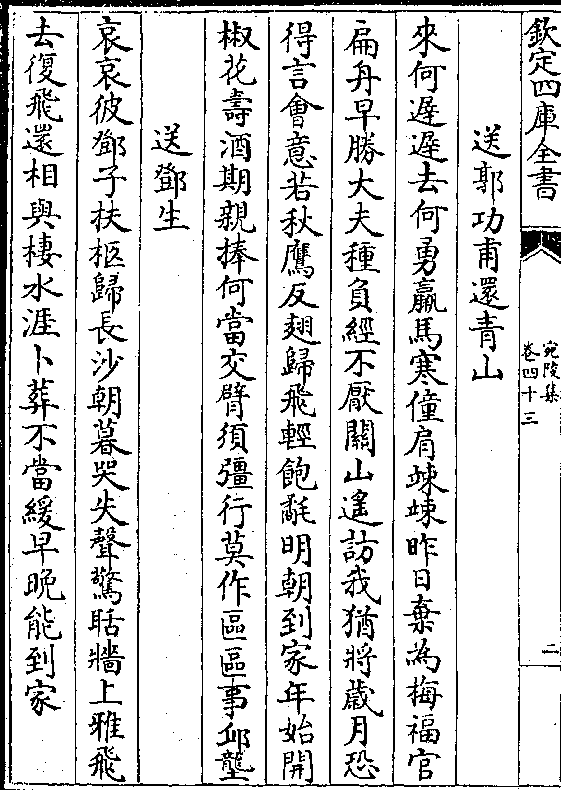 欽定四庫全書
宛陵集
卷四十三
二
送郭功甫還青山
來何遲遲去何勇羸馬寒僮肩竦竦昨日棄為梅福官
扁舟早勝大夫種負經不厭關山遙訪我猶將歲月恐
得言會意若秋鷹反翅歸飛輕飽氄明朝到家年始開
椒花壽酒期親捧何當交臂須彊行莫作區區事邱壟
送鄧生
哀哀彼鄧子扶柩歸長沙朝暮哭失聲驚聒牆上雅飛
去復飛還相與棲水涯卜葬不當緩早晚能到家